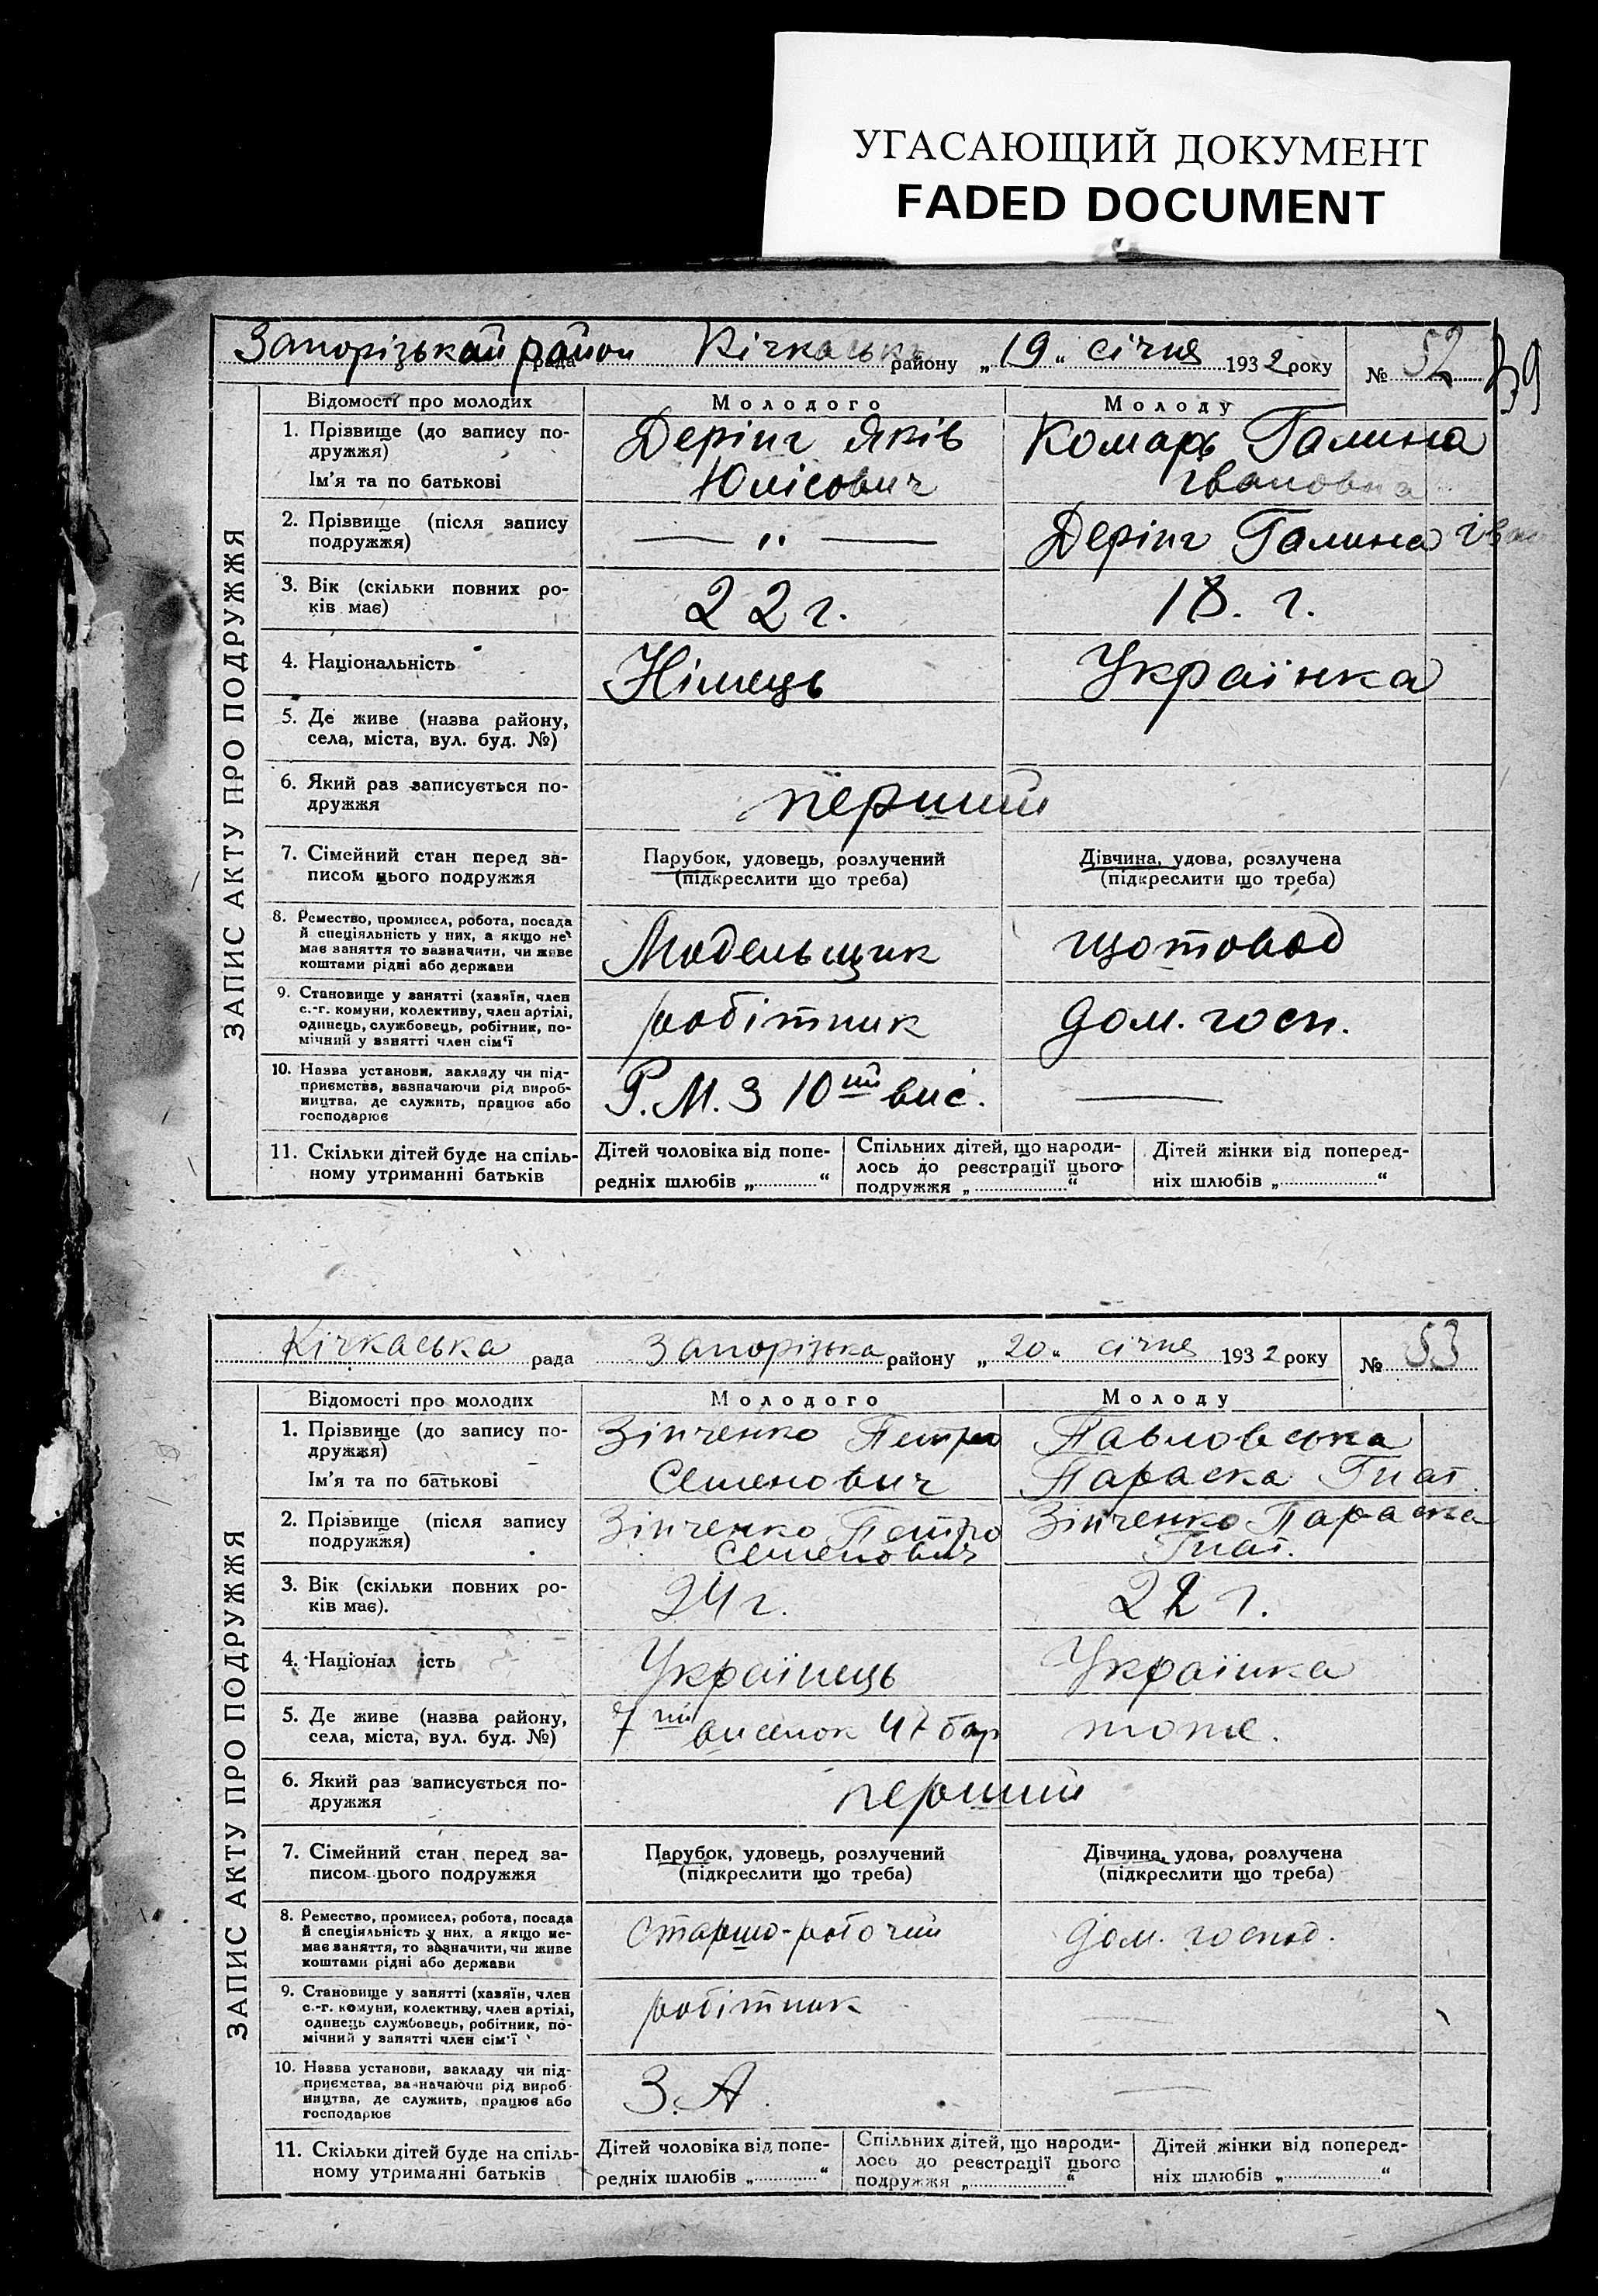 УГАСАЮЩИЙ ДОКУМЕНТ
FADED DOCUMENT
Запорізький район рада Кічкаськ району „19“ січня 1932 року № 52 59
ЗАПИС АКТУ ПРО ПОДРУЖЖЯ
Відомості про молодих Молодого Молоду
1. Прізвище (до запису по-
дружжя)
Ім'я та по батькові
Дерінг Яків
Юлісович
Комарь Галина
Івановна
2. Прізвище (після запису
подружжя)
— „ —
Дерінг Галина Іван
3. Вік (скільки повних ро-
ків має)
22 г.
18. г.
4. Національність
Німець
Українка
5. Де живе (назва району,
села, міста, вул. буд. №)
6. Який раз записується по-
дружжя
перший
7. Сімейний стан перед за-
писом цього подружжя
Парубок, удовець, розлучений
(підкреслити що треба)
Дівчина, удова, розлучена
(підкреслити що треба)
8. Ремество, промисел, робота, посада
й спеціяльність у них, а якщо не
має заняття то зазначити, чи живе
коштами рідні або держави
Модельщик
щотовод
9. Становище у занятті (хазяїн, член
с.-г. комуни, колективу, член артілі,
одинець, службовець, робітник, по-
мічний у занятті член сім'ї
робітник
дом. госп.
10. Назва установи, закладу чи під-
приємства, зазначаючи рід вироб-
ництва, де служить, працює або
господарює
Р.М.З 10ий вис.
—
11. Скільки дітей буде на спіль-
ному утриманні батьків
Дітей чоловіка від попе-
редніх шлюбів „ “
Спільних дітей, що народи-
лось до реєстрації цього
подружжя „ “
Дітей жінки від поперед-
ніх шлюбів „ “
Кічкаська рада Запорізька району „20“ січня 1932 року № 53
ЗАПИС АКТУ ПРО ПОДРУЖЖЯ
Відомості про молодих Молодого Молоду
1. Прізвище (до запису по-
дружжя)
Ім'я та по батькові
Зінченко Петро
Семенович
Павловська
Параска Гнат.
2. Прізвище (після запису
подружжя)
Зінченко Петро
Семенович
Зінченко Параска
Гнат.
3. Вік (скільки повних ро-
ків має).
24 г.
22 г.
4. Націонал ість
Українець
Українка
5. Де живе (назва району,
села, міста, вул. буд. №)
7ий виселок 47 бар
тоже.
6. Який раз записується по-
дружжя
перший
7. Сімейний стан перед за-
писом цього подружжя
Парубок, удовець, розлучений
(підкреслити що треба)
Дівчина, удова, розлучена
(підкреслити що треба)
8. Ремество, промисел, робота, посада
й спеціяльність у них, а якщо не-
має заняття, то зазначити, чи живе
коштами рідні або держави
Старшо-робочий
дом. господ.
9. Становище у занятті (хазяїн, член
с.-г. комуни, колективу, член артілі,
одинець службовець, робітник, по-
мічний у занятті член сім'ї
робітник
10. Назва установи, закладу чи під-
приємства, зазначаючи рід вироб-
ництва, де служить, працює або
господарює
З.А.
—
11. Скільки дітей буде на спіль-
ному утриманні батьків
Дітей чоловіка від попе-
редніх шлюбів „ “
Спільних дітей, що народи-
лось до реєстрації цього
подружжя „ “
Дітей жінки від поперед-
ніх шлюбів „ “